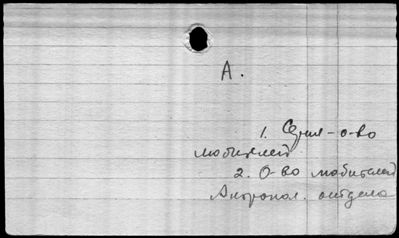 А.
1. -о-во
любителей
2. О-во любителей
Антропол. отдела